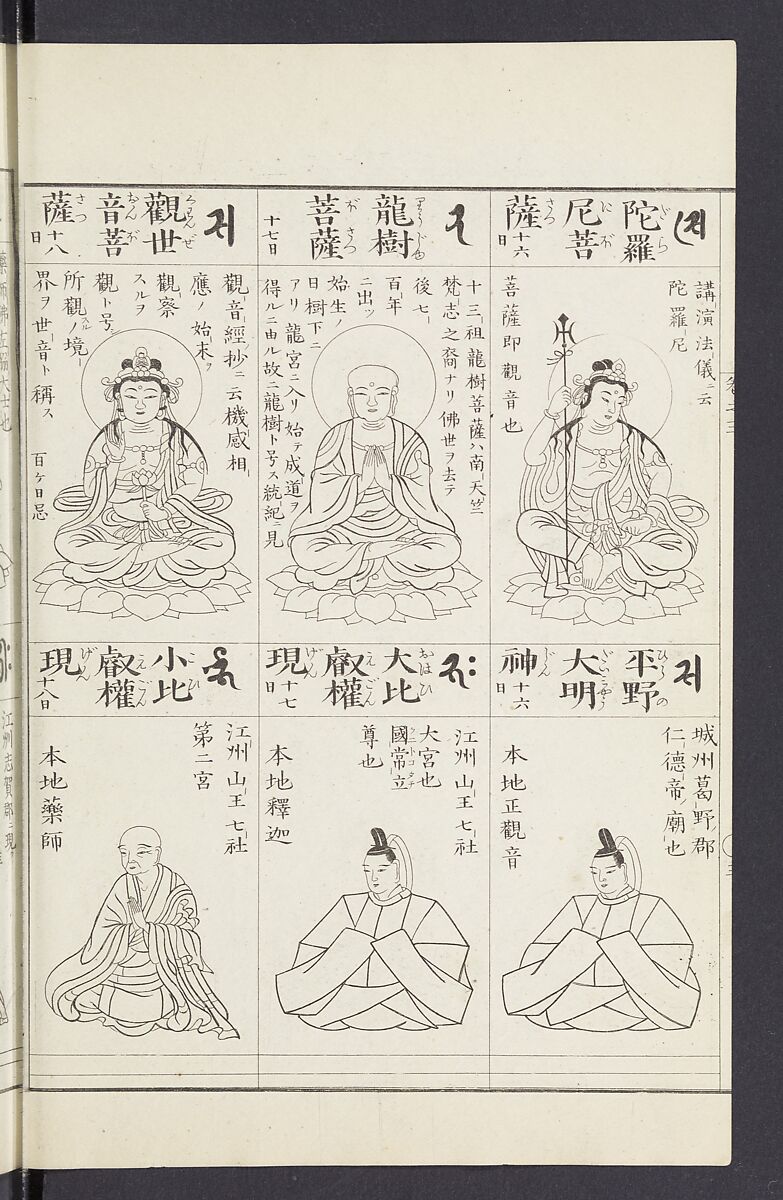 陀羅
尼菩
薩 十六日
講演法儀ニ云
陀羅尼
菩薩即觀音也
龍樹
菩薩
十七日
十三祖龍樹菩薩ハ南天竺
梵志之裔ナリ佛世ヲ去テ
後七
百年
ニ出ッ
始生ノ
日樹下ニ
アリ龍宮ニ入リ始テ成道ヲ
得ルニ由ル故ニ龍樹ト号ス統紀ニ見
觀世
音菩
薩 十八日
觀音經抄ニ云機感相
應ノ始末ヲ
觀察
スルヲ
觀ト号
所觀ノ境
界ヲ世音ト稱ス
百ヶ日忌
平野
大明
神 十六日
城州葛野郡
仁德帝ノ廟也
本地正觀音
大比
叡權
現 十七日
江州山王七社
大宮也
國常立
尊也
本地釋迦
小比
叡權
現 十八日
江州山王七社
第二宮
本地藥師